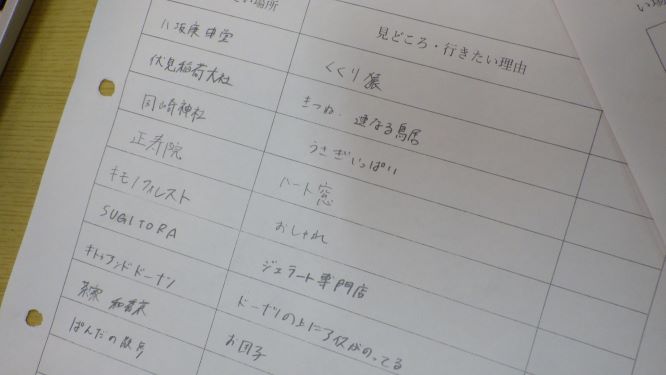 い場所
見どころ・行きたい理由
八坂庚申堂 くくり猿
伏見稲荷大社 きつね、連なる鳥居
岡崎神社 うさぎいっぱい
正寿院 ハート窓
キモノフォレスト おしゃれ
SUGITORA ジェラート専門店
ドーナツ ドーナツの上に のってる
茶寮 和香菜 お団子
ぱんだの散歩
い場